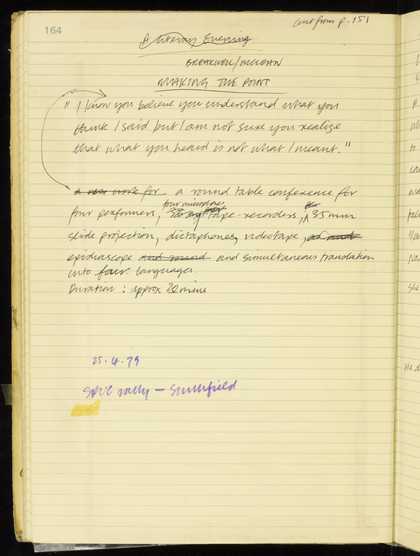 164
cont from p. 151
A Literary Evening
BREAKWELL/MCLEAN
MAKING THE POINT
"I know you believe you understand what you
think I said but I am not sure you realize
that what you heard is not what I meant."
A new work for a round table conference for
four microphones
four performers, tape recorders, 35mm
slide projection, dictaphones, videotape,
epidiascope and sound and simultaneous translation
into four languages
Duration : approx 20 mins
25.4.79
rally — Smithfield